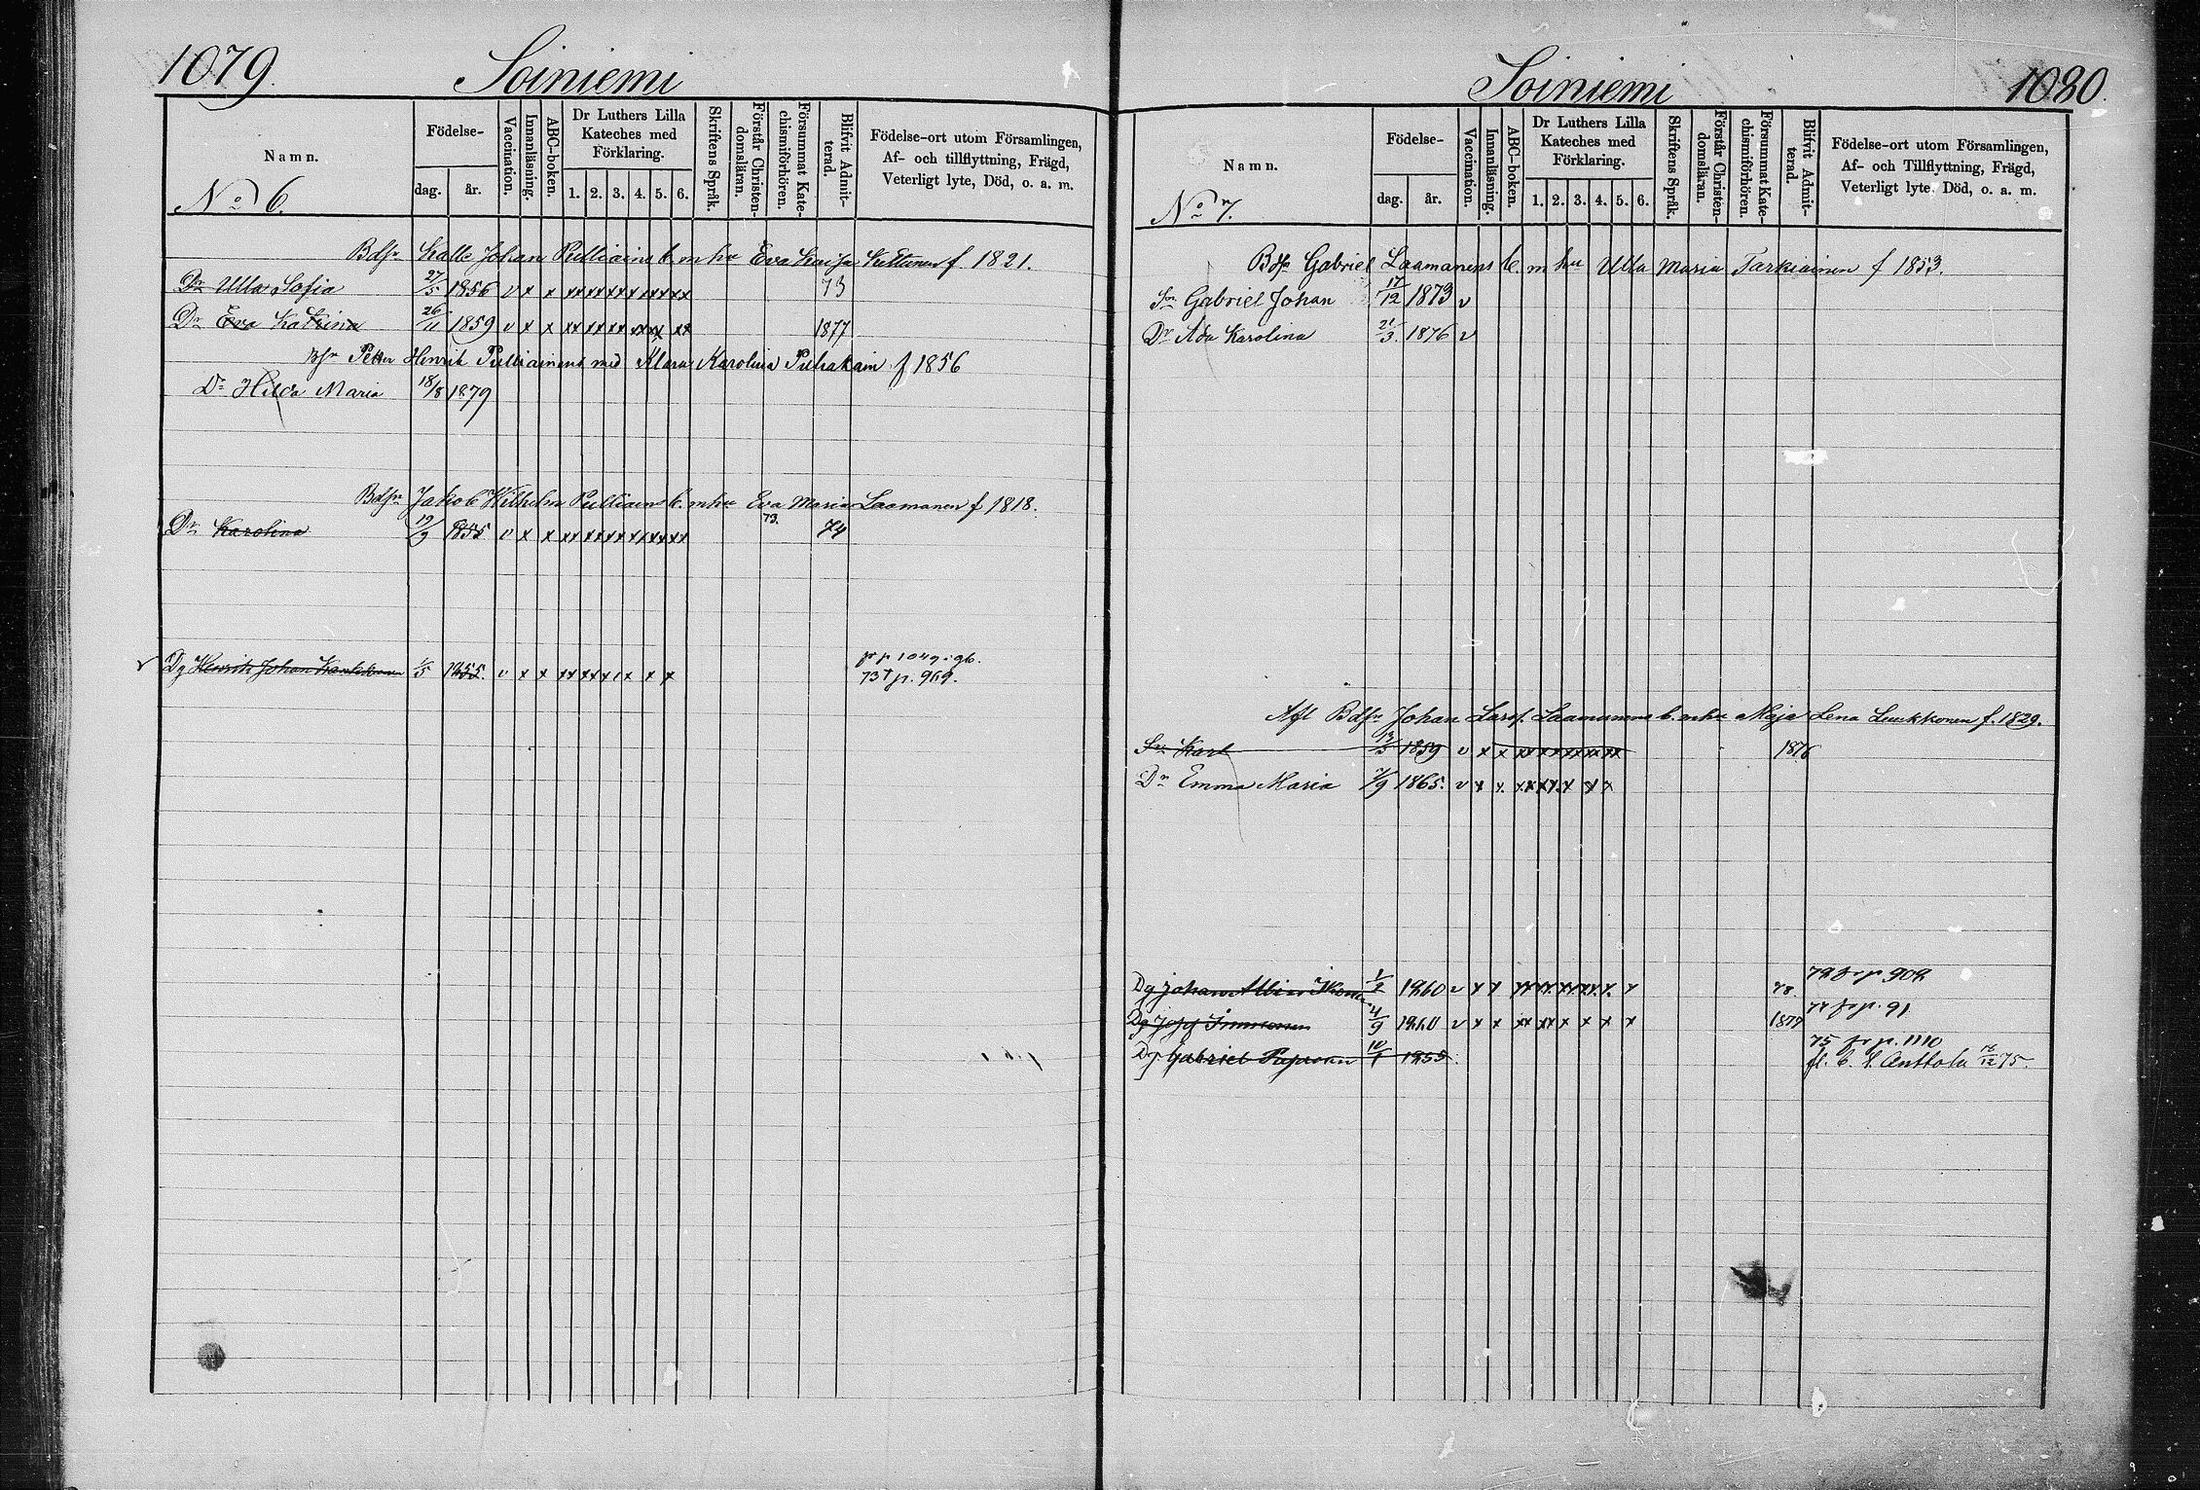 1079.
Soiniemi
Namn.
No 6.
Födelse-
dag.
år.
Vaccination.
Innanläsning.
ABC-boken.
Dr Luthers Lilla
Kateches med
Förklaring.
1. 2. 3. 4. 5. 6.
Skriftens Språk.
Förstår Christen-
domsläran.
Försummat Kate-
chismiförhören.
Blifvit Admit-
terad.
Födelse-ort utom Församlingen,
Af- och tillflyttning, Frägd,
Veterligt lyte, Död, o. a. m.
Bdsr Kalle Johan Pulliains b. m hu Eva Kaisa Kuttunen f. 1821.
Dr Ulla Sofia 27/5 1856 v x x xx xx xx x x x x x x 73
Dr Eva Katrina 26/11 1859 v x x xx xx xx xx x xx 1877
Bsr Petter Henrik Pulliainens med Klara Karolina Pitkakain f 1856
Dr Hilda Maria 18/8 1879
Bdsr Jakob Wilhelm Pulliains b. m hu Eva Maria Laamanen f 1818.
Dr Karolina 19/9 1855 v x x xx xx xx x x x x x x 73. 74
Dg Henrik Johan 1/5 1855. v x x xx xx x x x x
fr p 1049 : 96.
73 t p. 969.
1080.
Soiniemi
Namn.
No 7.
Födelse-
dag.
år.
Vaccination.
Innanläsning.
ABC-boken.
Dr Luthers Lilla
Kateches med
Förklaring.
1. 2. 3. 4. 5. 6.
Skriftens Språk.
Förstår Christen-
domsläran.
Försummat Kate-
chismiförhören.
Blifvit Admit-
terad.
Födelse-ort utom Församlingen,
Af- och Tillflyttning, Frägd,
Veterligt lyte, Död, o. a. m.
Bdsr Gabriel Laamanens b m hu Ulla Maria Tarkiainen f 1853.
Sn Gabriel Johan 17/12 1873 v
Dr Ada Karolina 21/3 1876 v
Afl Bdsr Johan Larss. Laamanens b. m hu Maja Lena Luukkonen f. 1829.
Sn Karl 13/5 1859 v x x xx x x x x x x x 1876
Dr Emma Maria 7/9 1865. v x x. xx xx x x x
Dg Johan Albin 1860 v x x xx xx xx xx. x. x 78.
72 fr p 902
Dg Josef Immonen 4/9 1860 v x x xx xx x x x x 1879
77 fr p. 91
Dg. Gabriel 10/1 1855
75 fr p. 1110
fl. t. Anttola 16/12 75.